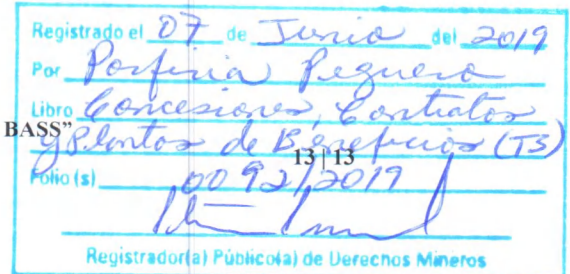 Registrado el 07 de Junio del 2019
Por Porfiria Peguero
Libro Concesiones, Contratos
BASS”
y Plantas de Beneficios (T3)
13 | 13
Folio (s) 0092/2019
Registrador(a) Público(a) de Derechos Mineros